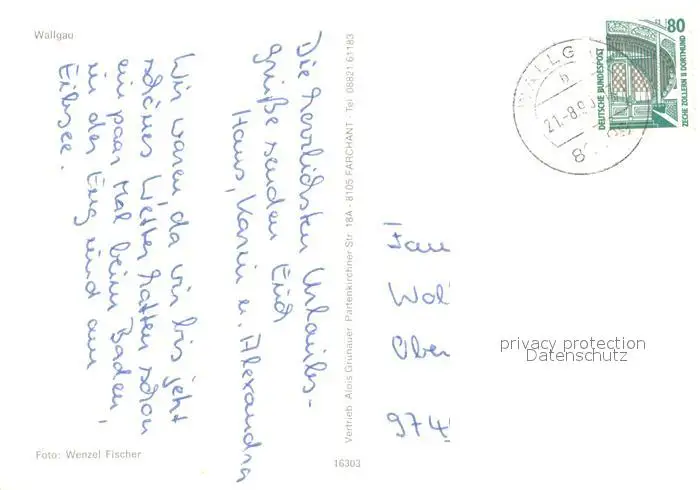 Wallgau
Die herzlichsten Urlaubs-
grüße senden Euch
Hans, Karin u. Alexandra
Wir waren, da wir bis jetzt
schönes Wetter hatten schon
ein paar Mal beim Baden,
in der Eng und am
Eibsee.
Foto: Wenzel Fischer
Vertrieb Alois Grünauer Partenkirchner Str. 18A - 8105 FARCHANT Tel. 08821 61183
16303
WALLG
b
21.-8.9
81
80
DEUTSCHE BUNDESPOST
ZECHE ZOLLERN II DORTMUND
Fam
Wol
Ober
974
privacy protection
Datenschutz